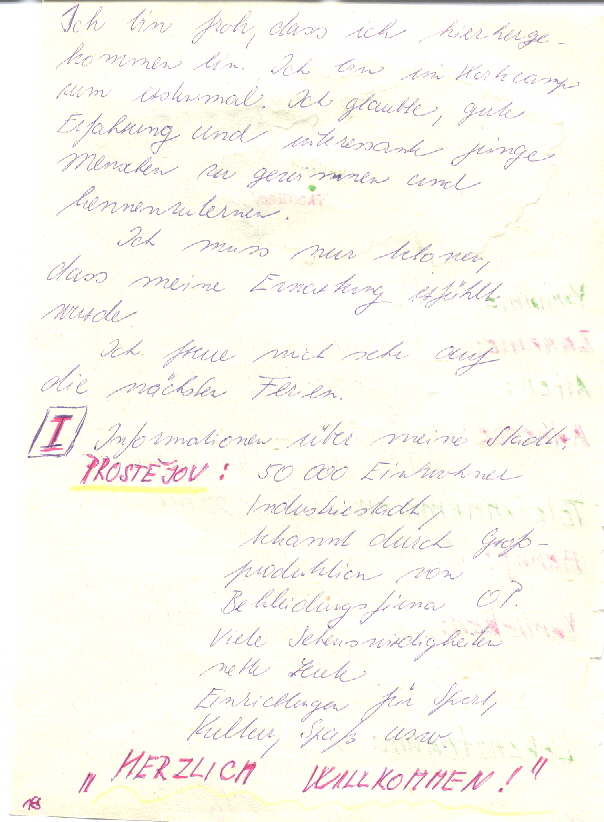 Ich bin froh, dass ich hierherge-
kommen bin. Ich bin im Workcamp
zum erstenmal. Ich glaubte, gute
Erfahrung und interessante junge
Menschen zu gewinnen und
kennenzulernen.
Ich muss nur betonen,
dass meine Erwartung erfüllt
wurde.
Ich freue mich sehr auf
die nächsten Ferien.
I Informationen über meine Stadt.
PROSTĚJOV: 50 000 Einwohner
Industriestadt,
bekannt durch Groß-
produktion von
Bekleidungsfirma OP.
Viele Sehenswürdigkeiten
nette Leute
Einrichtungen für Sport,
Kultur, Spaß usw.
„HERZLICH WILLKOMMEN!"